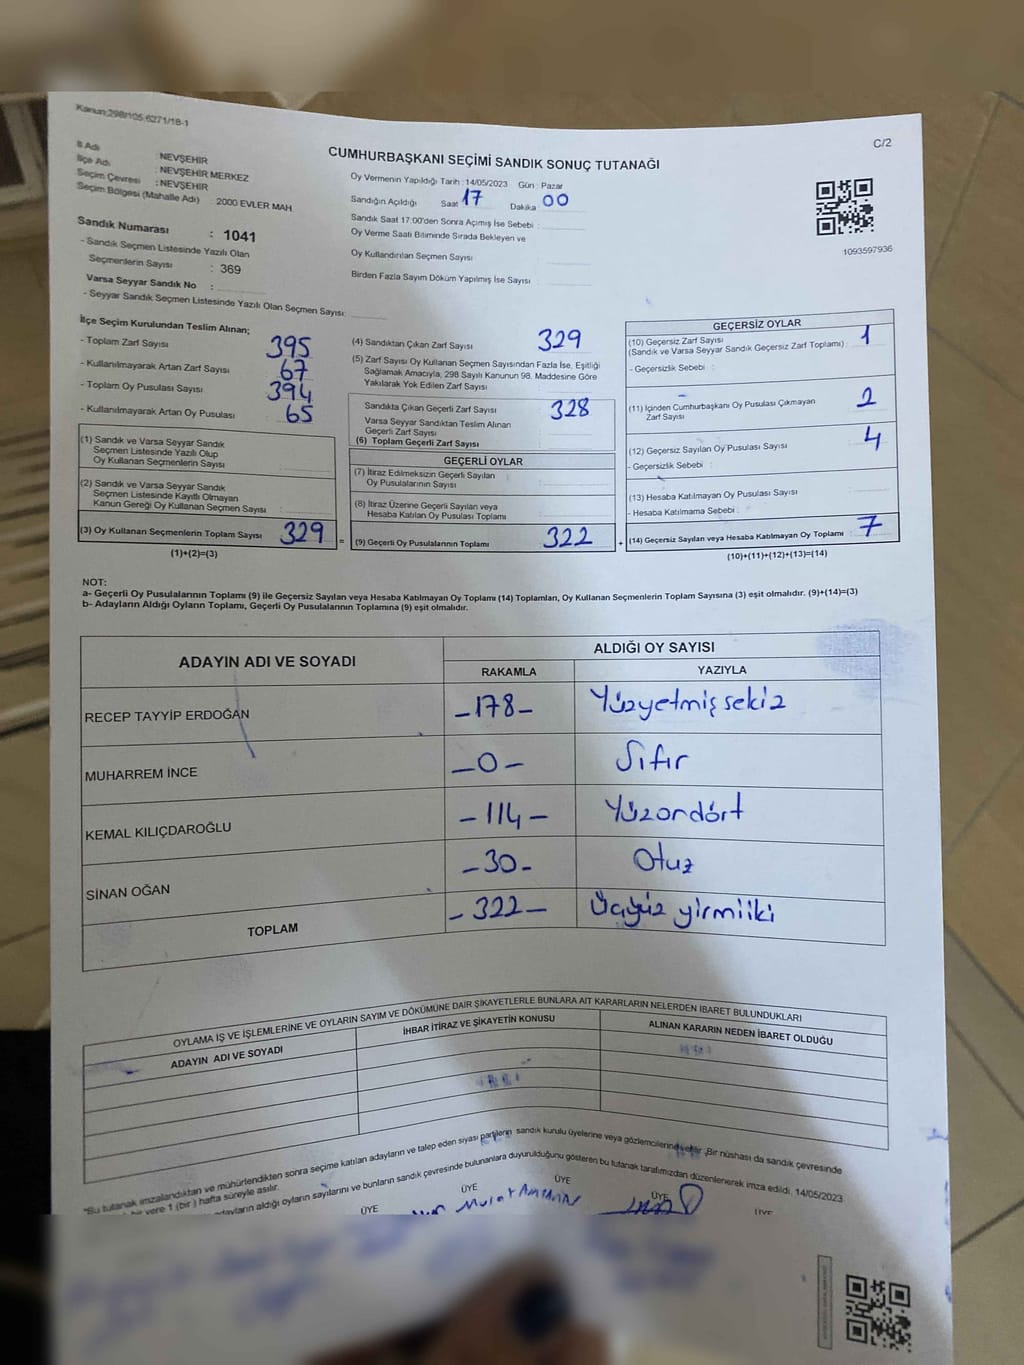 Kanun:298/105;6271/18-1
C/2
CUMHURBAŞKANI SEÇİMİ SANDIK SONUÇ TUTANAĞI
İl Adı : NEVŞEHİR
İlçe Adı : NEVŞEHİR MERKEZ
Seçim Çevresi : NEVŞEHİR
Seçim Bölgesi (Mahalle Adı) : 2000 EVLER MAH
Sandık Numarası : 1041
- Sandık Seçmen Listesinde Yazılı Olan
Seçmenlerin Sayısı : 369
Varsa Seyyar Sandık No :
- Seyyar Sandık Seçmen Listesinde Yazılı Olan Seçmen Sayısı:
Oy Vermenin Yapıldığı Tarih : 14/05/2023 Gün : Pazar
Sandığın Açıldığı Saat 17 Dakika 00
Sandık Saat 17:00'den Sonra Açımış İse Sebebi :
Oy Verme Saati Bitiminde Sırada Bekleyen ve
Oy Kullandırılan Seçmen Sayısı
Birden Fazla Sayım Döküm Yapılmış İse Sayısı :
1093597936
İlçe Seçim Kurulundan Teslim Alınan;
- Toplam Zarf Sayısı 395
- Kullanılmayarak Artan Zarf Sayısı 67
- Toplam Oy Pusulası Sayısı 394
- Kullanılmayarak Artan Oy Pusulası 65
(1) Sandık ve Varsa Seyyar Sandık
Seçmen Listesinde Yazılı Olup
Oy Kullanan Seçmenlerin Sayısı :
(2) Sandık ve Varsa Seyyar Sandık
Seçmen Listesinde Kayıtlı Olmayan
Kanun Gereği Oy Kullanan Seçmen Sayısı :
(3) Oy Kullanan Seçmenlerin Toplam Sayısı 329 =
(1)+(2)=(3)
(4) Sandıktan Çıkan Zarf Sayısı 329
(5) Zarf Sayısı Oy Kullanan Seçmen Sayısından Fazla İse, Eşitliği
Sağlamak Amacıyla, 298 Sayılı Kanunun 98. Maddesine Göre
Yakılarak Yok Edilen Zarf Sayısı
Sandıkta Çıkan Geçerli Zarf Sayısı 328
Varsa Seyyar Sandıktan Teslim Alınan
Geçerli Zarf Sayısı
(6) Toplam Geçerli Zarf Sayısı
GEÇERLİ OYLAR
(7) İtiraz Edilmeksizin Geçerli Sayılan
Oy Pusulalarının Sayısı
(8) İtiraz Üzerine Geçerli Sayılan veya
Hesaba Katılan Oy Pusulası Toplamı
(9) Geçerli Oy Pusulalarının Toplamı 322 +
GEÇERSİZ OYLAR
(10) Geçersiz Zarf Sayısı 1
(Sandık ve Varsa Seyyar Sandık Geçersiz Zarf Toplamı) :
- Geçersizlik Sebebi :
(11) İçinden Cumhurbaşkanı Oy Pusulası Çıkmayan 2
Zarf Sayısı
(12) Geçersiz Sayılan Oy Pusulası Sayısı 4
- Geçersizlik Sebebi :
(13) Hesaba Katılmayan Oy Pusulası Sayısı
- Hesaba Katılmama Sebebi :
(14) Geçersiz Sayılan veya Hesaba Katılmayan Oy Toplamı : 7
(10)+(11)+(12)+(13)=(14)
NOT:
a- Geçerli Oy Pusulalarının Toplamı (9) ile Geçersiz Sayılan veya Hesaba Katılmayan Oy Toplamı (14) Toplamları, Oy Kullanan Seçmenlerin Toplam Sayısına (3) eşit olmalıdır. (9)+(14)=(3)
b- Adayların Aldığı Oyların Toplamı, Geçerli Oy Pusulalarının Toplamına (9) eşit olmalıdır.
ADAYIN ADI VE SOYADI
ALDIĞI OY SAYISI
RAKAMLA YAZIYLA
RECEP TAYYİP ERDOĞAN -178- Yüzyetmişsekiz
MUHARREM İNCE -0- Sıfır
KEMAL KILIÇDAROĞLU -114- Yüzondört
SİNAN OĞAN -30- Otuz
TOPLAM -322- Üçyüz yirmiiki
OYLAMA İŞ VE İŞLEMLERİNE VE OYLARIN SAYIM VE DÖKÜMÜNE DAİR ŞİKAYETLERLE BUNLARA AİT KARARLARIN NELERDEN İBARET BULUNDUKLARI
ADAYIN ADI VE SOYADI İHBAR İTİRAZ VE ŞİKAYETİN KONUSU ALINAN KARARIN NEDEN İBARET OLDUĞU
"Bu tutanak imzalandıktan ve mühürlendikten sonra seçime katılan adayların ve talep eden siyasi partilerin sandık kurulu üyelerine veya gözlemcilerine Bir nüshası da sandık çevresinde
bir yere 1 (bir) hafta süreyle asılır.
adayların aldığı oyların sayılarını ve bunların sandık çevresinde bulunanlara duyurulduğunu gösteren bu tutanak tarafımızdan düzenlenerek imza edildi. 14/05/2023
ÜYE ÜYE ÜYE ÜYE ÜYE